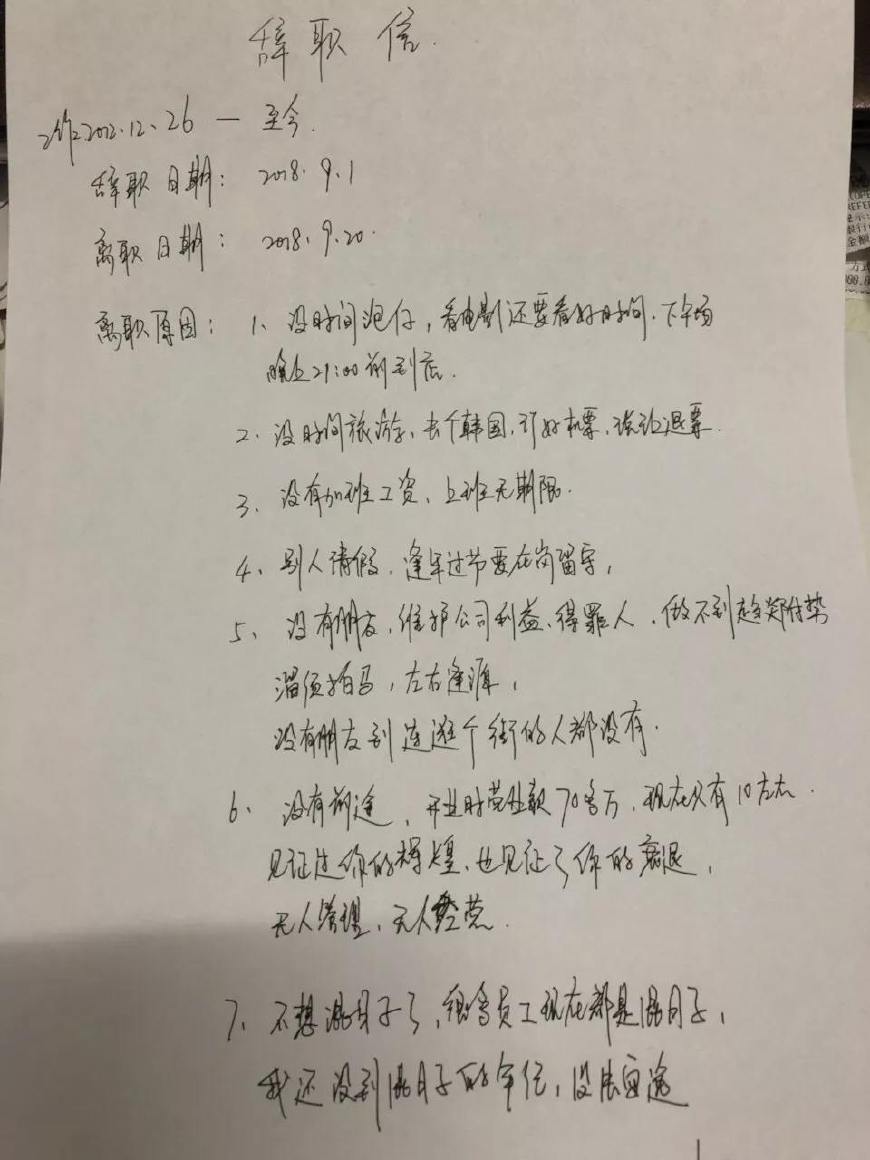 辞职信.
工作2012.12.26 — 至今.
辞职日期: 2018.9.1
离职日期: 2018.9.20.
离职原因: 1、没时间泡仔,看电影还要看好时间.下午场
晚上21:00前到店.
2、没时间旅游,去个韩国,订好机票,谈论退票.
3、没有加班工资、上班无期限.
4、别人请假、逢年过节要在岗留守,
5、没有朋友,维护公司利益、得罪人、做不到趋炎附势
溜须拍马,左右逢源,
没有朋友到连逛个街的人都没有.
6、没有前途、开业时营业款70多万,现在只有10左右.
见证过你的辉煌、也见证了你的衰退,
无人管理、无人经营.
7、不想混日子了,很多员工现在都是混日子,
我还没到混日子的年纪,没法安逸